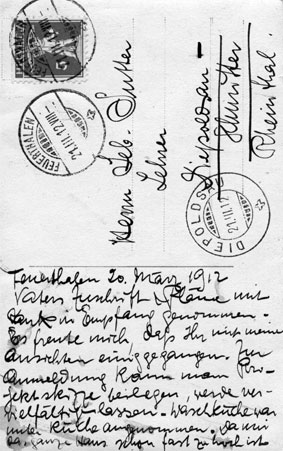 FEUERTHALEN
21.III.12.VIII
DIEPOLDSAU
21.III.12
Herrn Seb.
Lehrer
Diepoldsau -
Schmitter
Rheinthal.
Feuerthalen 20. März 1912
Vaters Zuschrift & Pläne mit
Dank in Empfang genommen.
Es freute mich, daß Ihr mit meine
Ansichten einiggegangen. Zur
Anmeldung kann man Pro-
jektskizze beilegen, werde ver-
vielfältigen lassen. Waschküche war
unter Küche angenommen. Da mir
das ganze Haus schon fast zu hoch ist